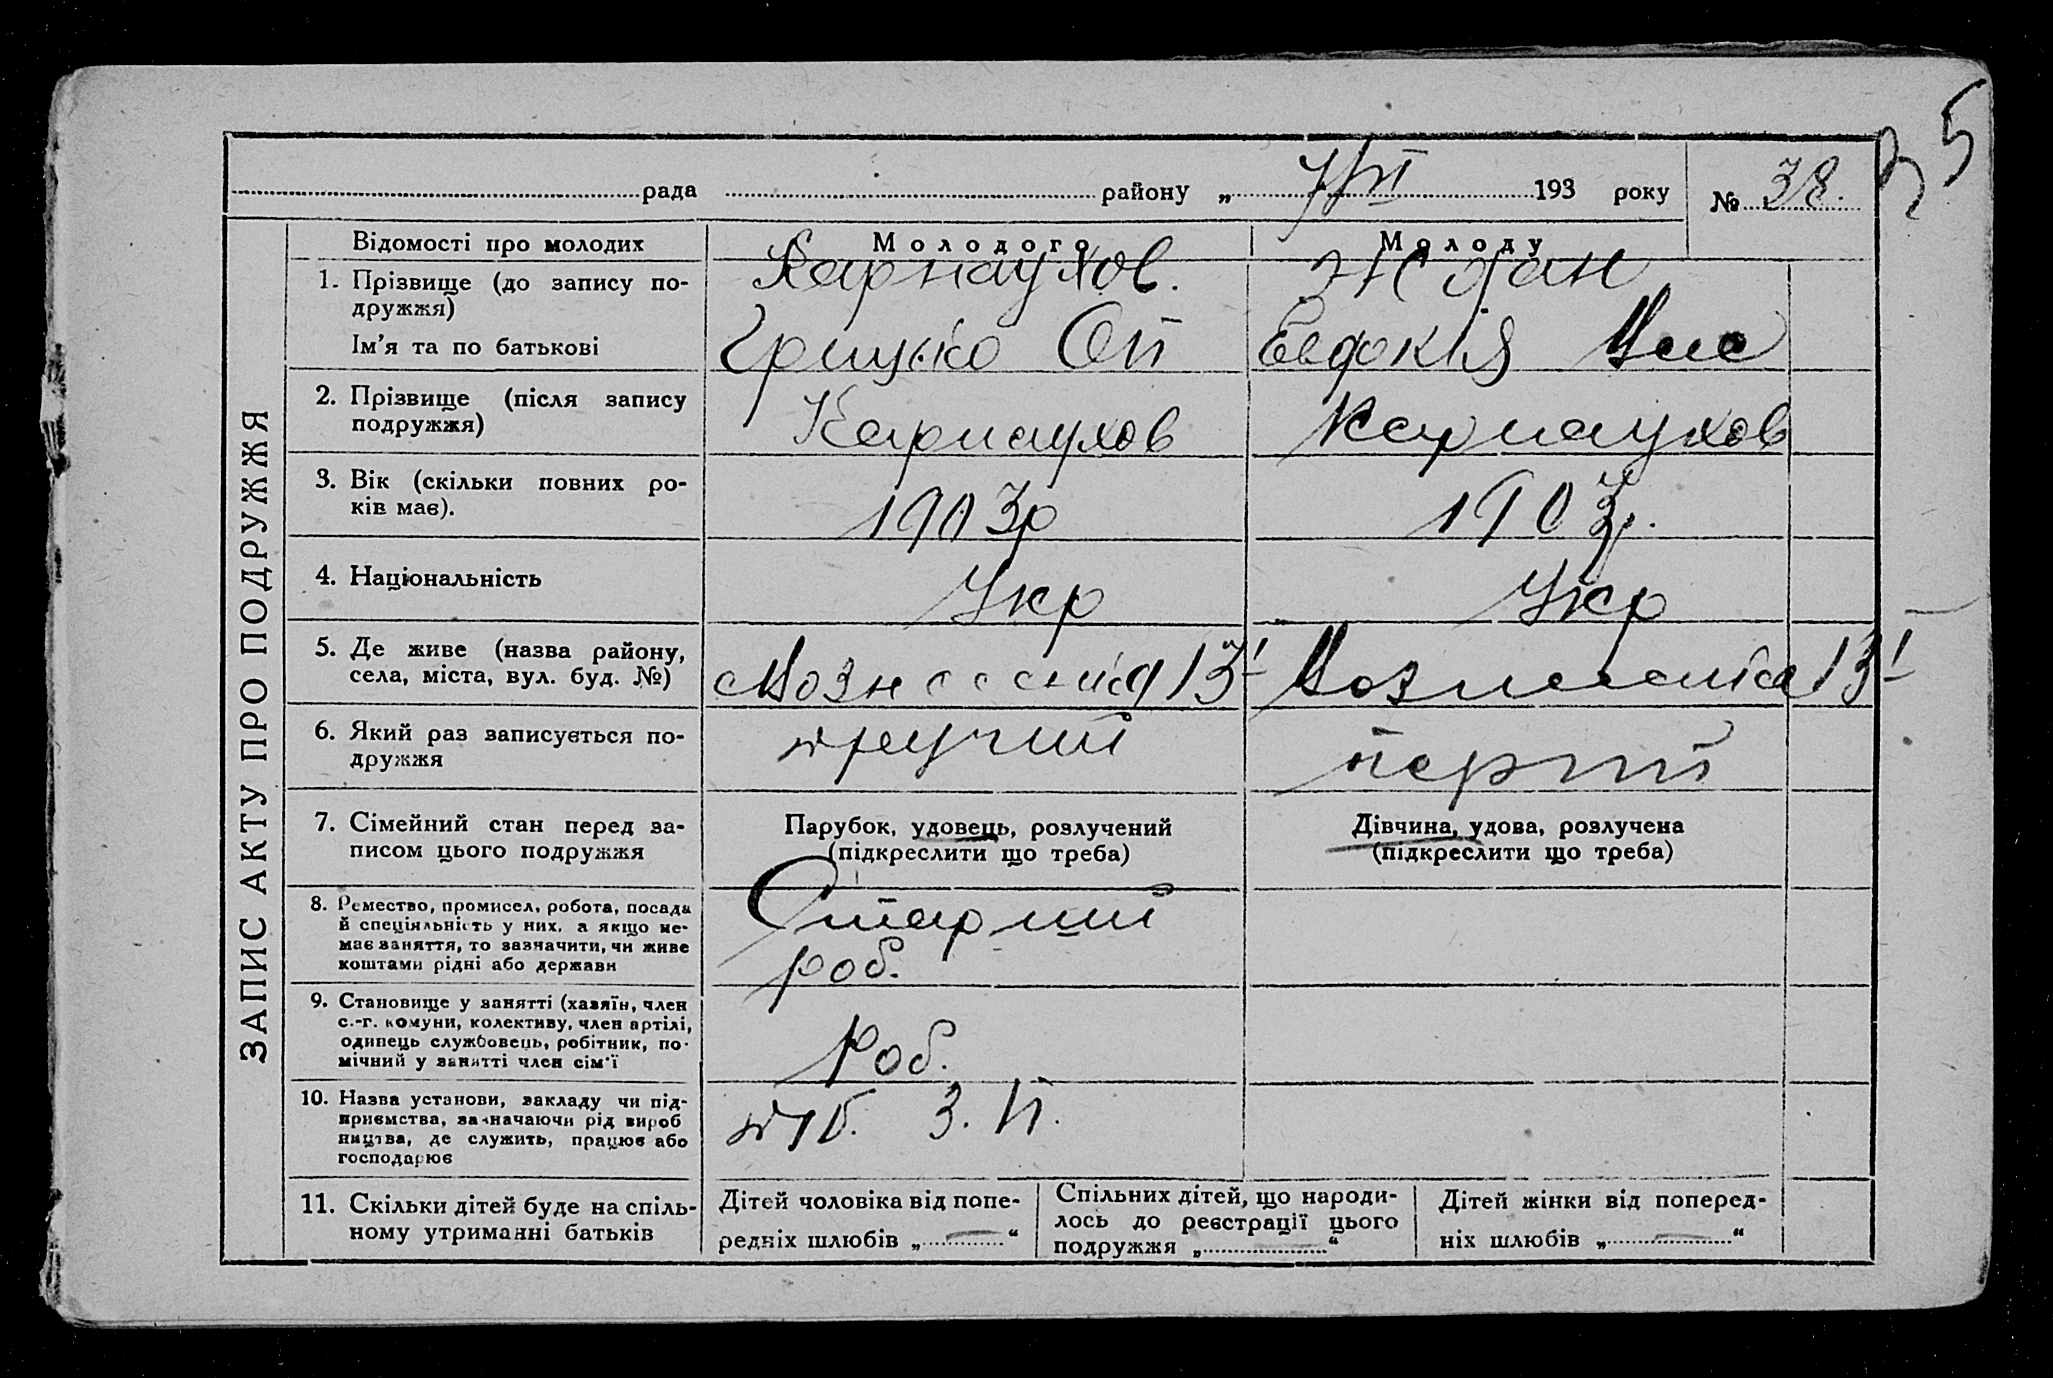 35
рада району „ 7/VI 193 року № 38.
ЗАПИС АКТУ ПРО ПОДРУЖЖЯ
Відомості про молодих
Молодого
Молоду
1. Прізвище (до запису по-
дружжя)
Карнаухов.
Жолан
Ім'я та по батькові
Грицко Оп
Евдокія Вас
2. Прізвище (після запису
подружжя)
Карнаухов
Карнаухов
3. Вік (скільки повних ро-
ків має).
1903р
1903р.
4. Національність
Укр
Укр
5. Де живе (назва району,
села, міста, вул. буд. №)
13
13
6. Який раз записується по-
дружжя
другий
перший
7. Сімейний стан перед за-
писом цього подружжя
Парубок, удовець, розлучений
(підкреслити що треба)
Дівчина, удова, розлучена
(підкреслити що треба)
8. Ремество, промисел, робота, посада
й спеціяльність у них, а якщо не-
має заняття, то зазначити, чи живе
коштами рідні або держави
Старший
роб.
9. Становище у занятті (хазяїн, член
с.-г. комуни, колективу, член артілі,
одинець службовець, робітник, по-
мічний у занятті член сім'ї
Роб.
10. Назва установи, закладу чи під-
приємства, зазначаючи рід вироб
ництва, де служить, працює або
господарює
З. П.
11. Скільки дітей буде на спіль-
ному утриманні батьків
Дітей чоловіка від попе-
редніх шлюбів „ — “
Спільних дітей, що народи-
лось до реєстрації цього
подружжя „ — “
Дітей жінки від поперед-
ніх шлюбів „ — “